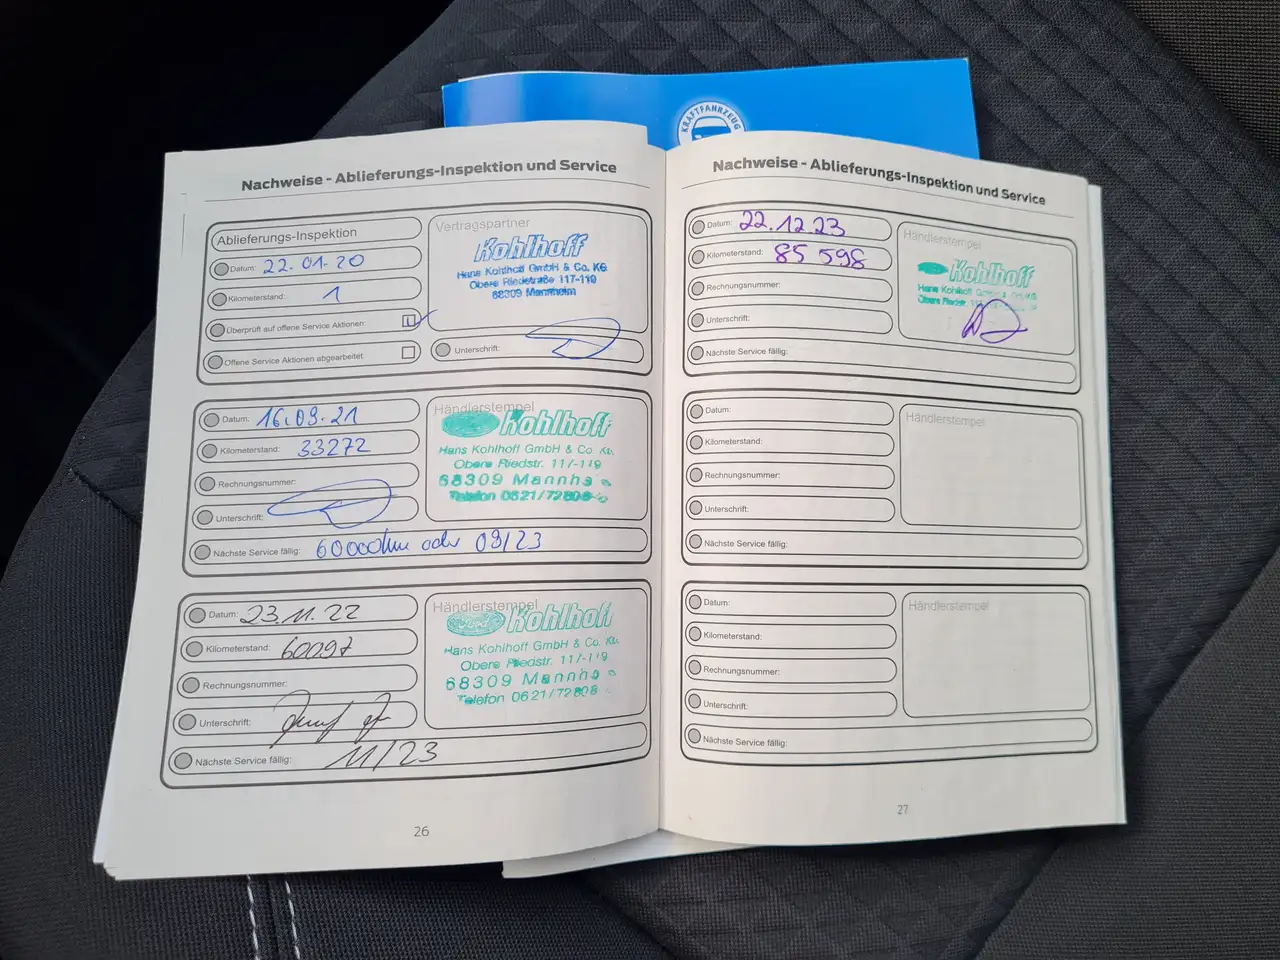 KRAFTFAHRZEUG
Nachweise - Ablieferungs-Inspektion und Service
Ablieferungs-Inspektion
Datum: 22.01.20
Kilometerstand: 1
Überprüft auf offene Service Aktionen:
Offene Service Aktionen abgearbeitet
Vertragspartner
Kohlhoff
Hans Kohlhoff GmbH & Co. KG
Obere Riedstraße 117-119
68309 Mannheim
Unterschrift:
Datum: 16.09.21
Kilometerstand: 33272
Rechnungsnummer:
Unterschrift:
Nächste Service fällig: 60000km oder 09/23
Händlerstempel
Kohlhoff
Hans Kohlhoff GmbH & Co
Obere Riedstr. 117-119
68309 Mannh
Telefon 0621/72808
Datum: 23.11.22
Kilometerstand: 60097
Rechnungsnummer:
Unterschrift:
Nächste Service fällig: 11/23
Händlerstempel
Ford Kohlhoff
Hans Kohlhoff GmbH & Co.
Obere Riedstr. 117-119
68309 Mannh
Telefon 0621/72808
26
Nachweise - Ablieferungs-Inspektion und Service
Datum: 22.12.23
Kilometerstand: 85 598
Rechnungsnummer:
Unterschrift:
Nächste Service fällig:
Händlerstempel
Kohlhoff
Hans Kohlhoff
Obere Riedstr.
Datum:
Kilometerstand:
Rechnungsnummer:
Unterschrift:
Nächste Service fällig:
Händlerstempel
Datum:
Kilometerstand:
Rechnungsnummer:
Unterschrift:
Nächste Service fällig:
Händlerstempel
27